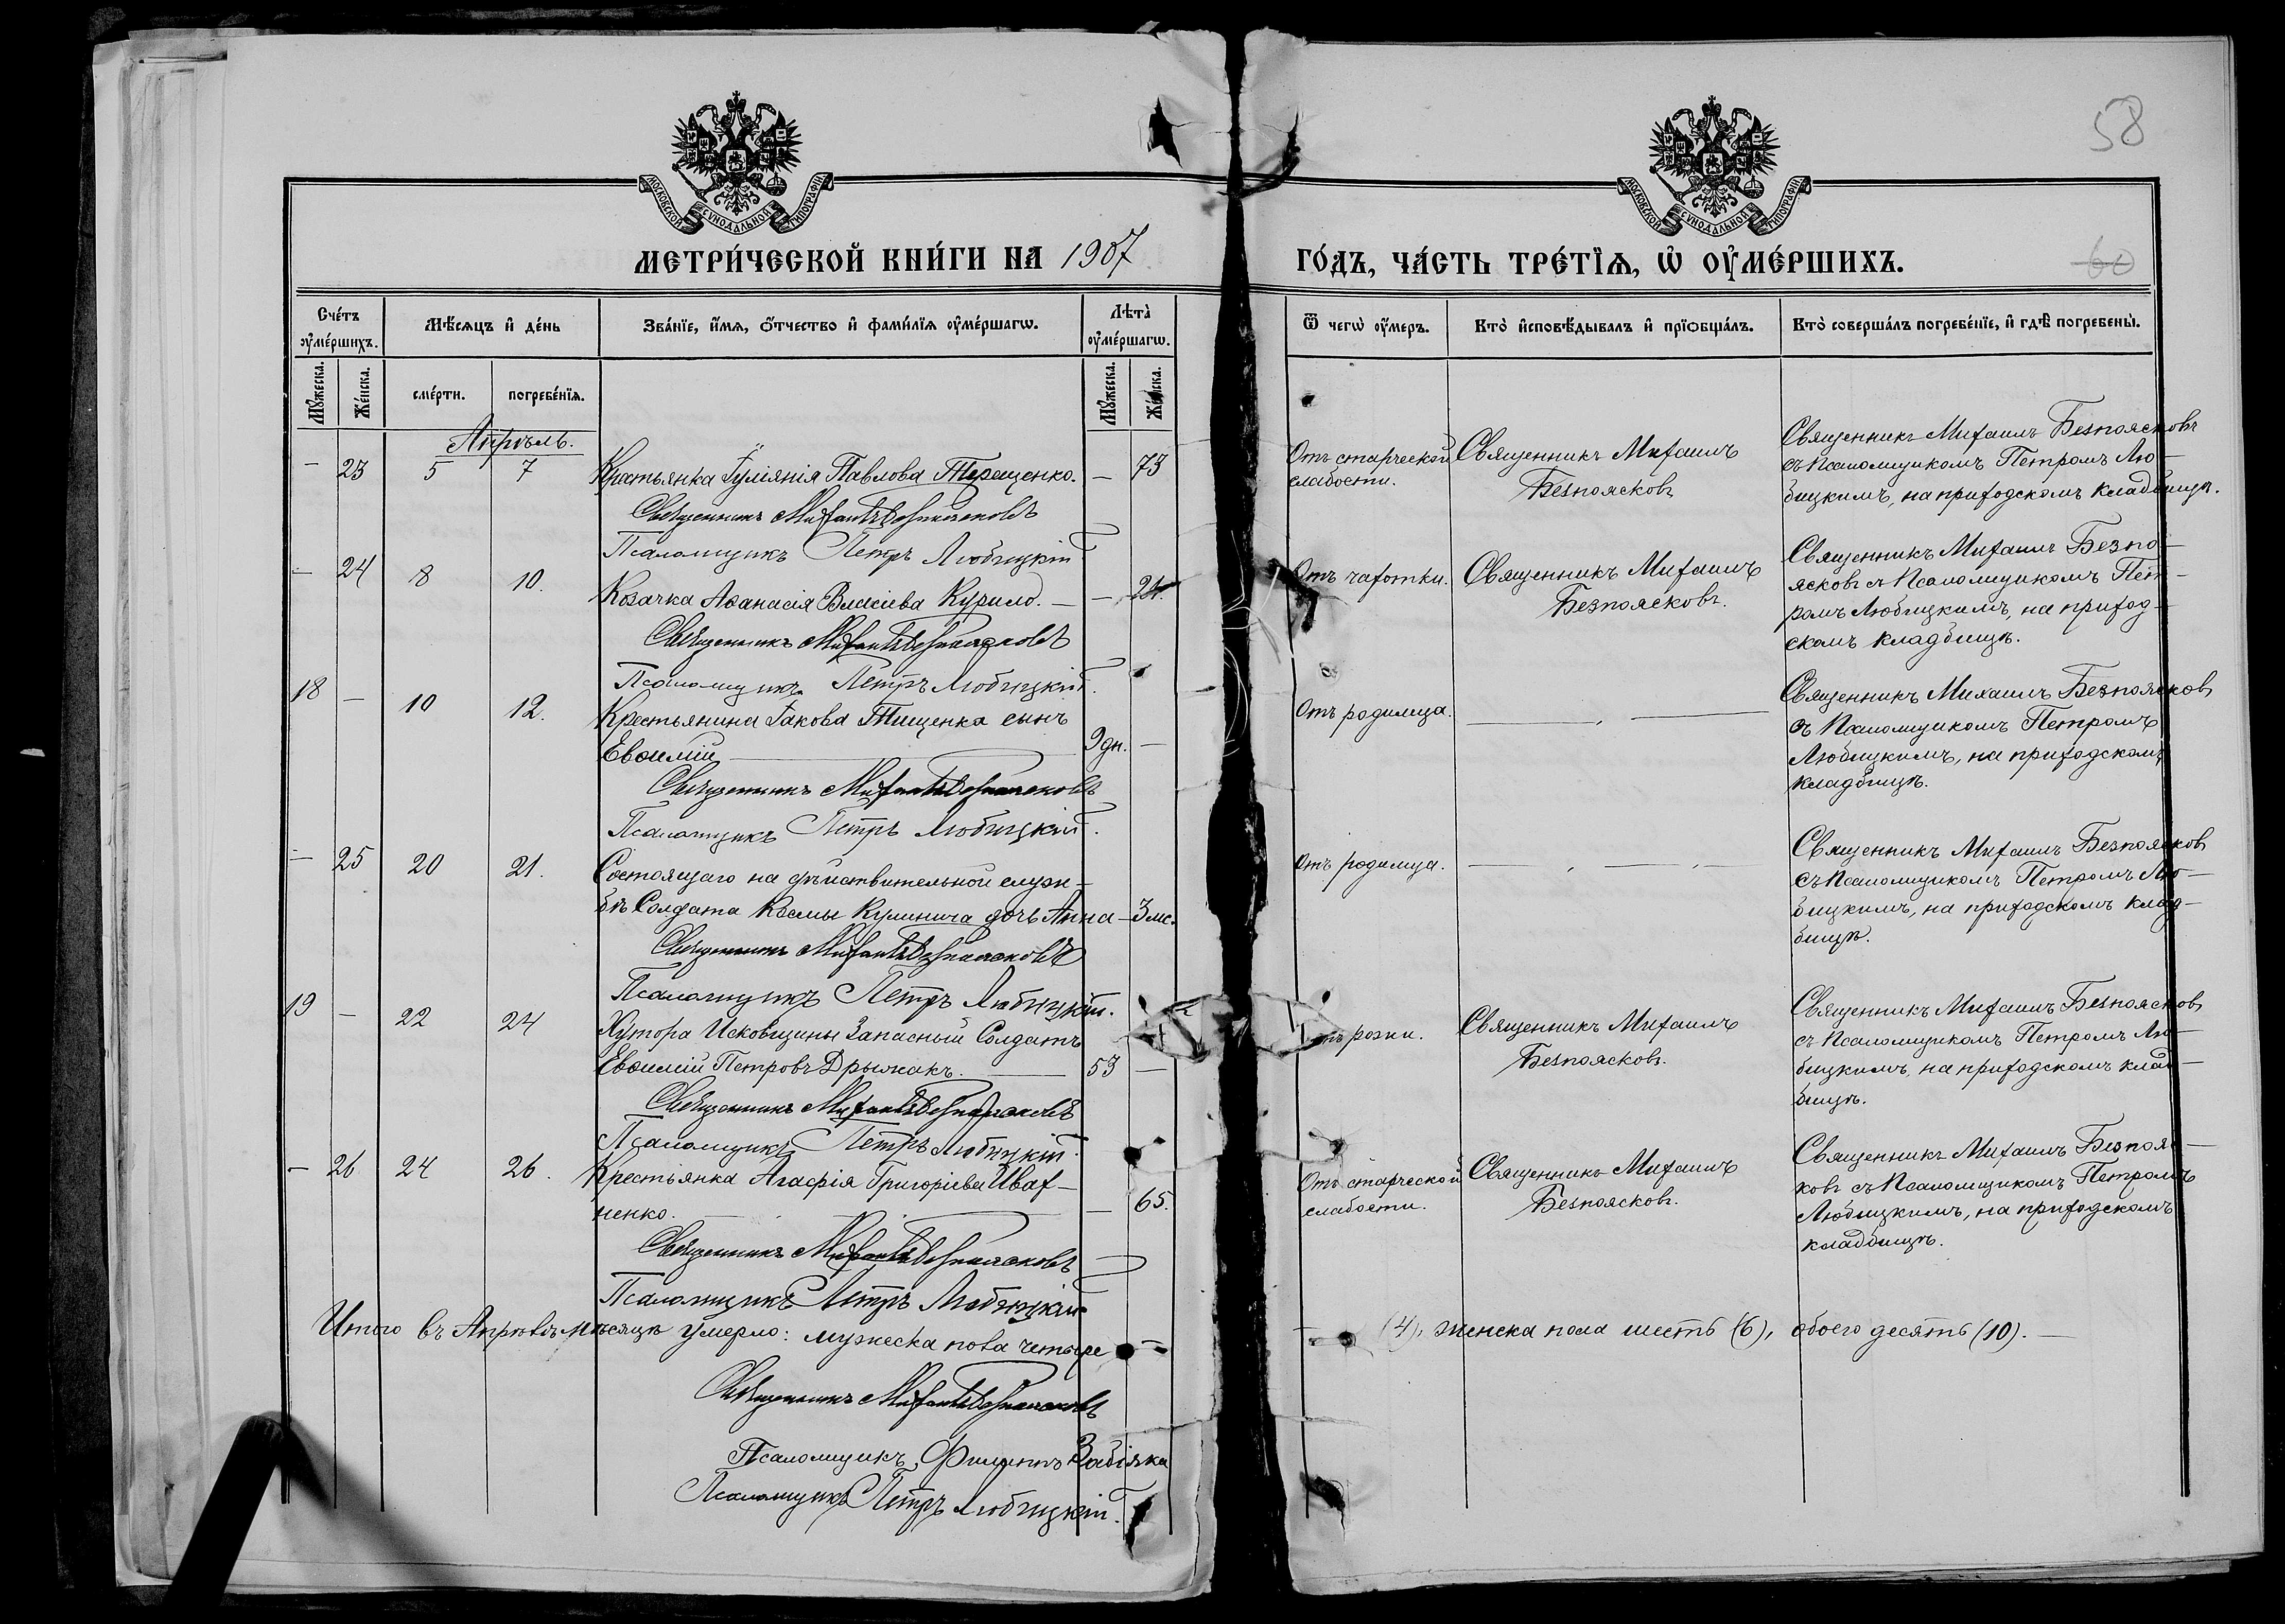 58
60
МОСКОВСКОЙ СѴНОДАЛЬНОЙ ТИПОГРАФІИ
МОСКОВСКОЙ СѴНОДАЛЬНОЙ ТИПОГРАФІИ
МЕТРИ́ЧЕСКОЙ КНИ́ГИ НА 1907
ГО́ДЪ, ЧА́СТЬ ТРЕ́ТЇѦ, Ѡ҆ ОУ҆МЕ́РШИХЪ.
Сче́тъ оу҆ме́ршихъ.
Мѣ́сѧцъ и҆ де́нь
Зва́нїе, и҆́мѧ, ѻ҆́тчество и҆ фами́лїѧ оу҆ме́ршагѡ.
Лѣ́та̀ оу҆ме́ршагѡ.
Ѿ чегѡ̀ оу҆́меръ.
Кто̀ и҆сповѣ́дывалъ и҆ прїѻбща́лъ.
Кто̀ соверша́лъ погребе́нїе, и҆ гдѣ̀ погребены̀.
Мꙋ́жеска.
Же́нска.
сме́рти.
погребе́нїѧ.
Мꙋ́жеска.
Же́нска.
Апрѣль.
– 23 5 7 Крестьянка Іуліянія Павлова Терещенко. – 73
Священникъ Михаилъ Безпоясковъ
Псаломщикъ Петръ Любицкій
Отъ старческой
слабости.
Священникъ Михаилъ
Безпоясковъ
Священникъ Михаилъ Безпоясковъ
съ Псаломщикомъ Петромъ Лю-
бицкимъ, на приходскомъ кладбищѣ.
– 24 8 10. Козачка Аѳанасія Власіева Курило. – – 24.
Священникъ Михаилъ Безпоясковъ
Псаломщикъ Петръ Любицкій.
Отъ чахотки.
Священникъ Михаилъ
Безпоясковъ.
Священникъ Михаилъ Безпо-
ясковъ съ Псаломщикомъ Пет-
ромъ Любицкимъ, на приход-
скомъ кладбищѣ.
18 – 10 12. Крестьянина Іакова Тищенка сынъ
Евѳимій 9 дн. –
Священникъ Михаилъ Безпоясковъ
Псаломщикъ Петръ Любицкій.
Отъ родимца.
Священникъ Михаилъ Безпоясковъ
съ Псаломщикомъ Петромъ
Любицкимъ, на приходскомъ
кладбищѣ.
– 25 20 21. Состоящаго на дѣйствительной служ-
бѣ Солдата Космы Кулинича дочь Анна – 3 мс.
Священникъ Михаилъ Безпоясковъ
Псаломщикъ Петръ Любицкій.
Отъ родимца.
Священникъ Михаилъ Безпоясковъ
съ Псаломщикомъ Петромъ Лю-
бицкимъ, на приходскомъ клад-
бищѣ.
19 – 22 24 Хутора Исковщины Запасный Солдатъ
Евѳимій Петровъ Дрыжакъ. 53 –
Священникъ Михаилъ Безпоясковъ
Псаломщикъ Петръ Любицкій.
рожи.
Священникъ Михаилъ
Безпоясковъ.
Священникъ Михаилъ Безпоясковъ
съ Псаломщикомъ Петромъ Лю-
бицкимъ, на приходскомъ клад-
бищѣ.
– 26 24 26. Крестьянка Агафія Григоріева Ивах-
ненко. – 65.
Священникъ Михаилъ Безпоясковъ
Псаломщикъ Петръ Любицкій
Отъ старческой
слабости.
Священникъ Михаилъ
Безпоясковъ.
Священникъ Михаилъ Безпояс-
ковъ съ Псаломщикомъ Петромъ
Любицкимъ, на приходскомъ
кладбищѣ.
Итого въ Апрѣлѣ мѣсяцѣ умерло: мужеска пола четыре – (4), женска пола шесть (6), обоего десять (10). –
Священникъ Михаилъ Безпоясковъ
Псаломщикъ Филиппъ Забіяка
Псаломщикъ Петръ Любицкій.